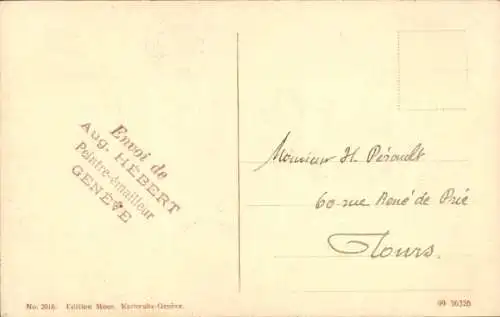 Envoi de
Aug. HÉBERT
Peintre-émailleur
GENÈVE
Monsieur H. Pérault
60 rue René de Prie
Tours.
No. 2018. Edition Moos, Karlsruhe-Genève.
09 50320